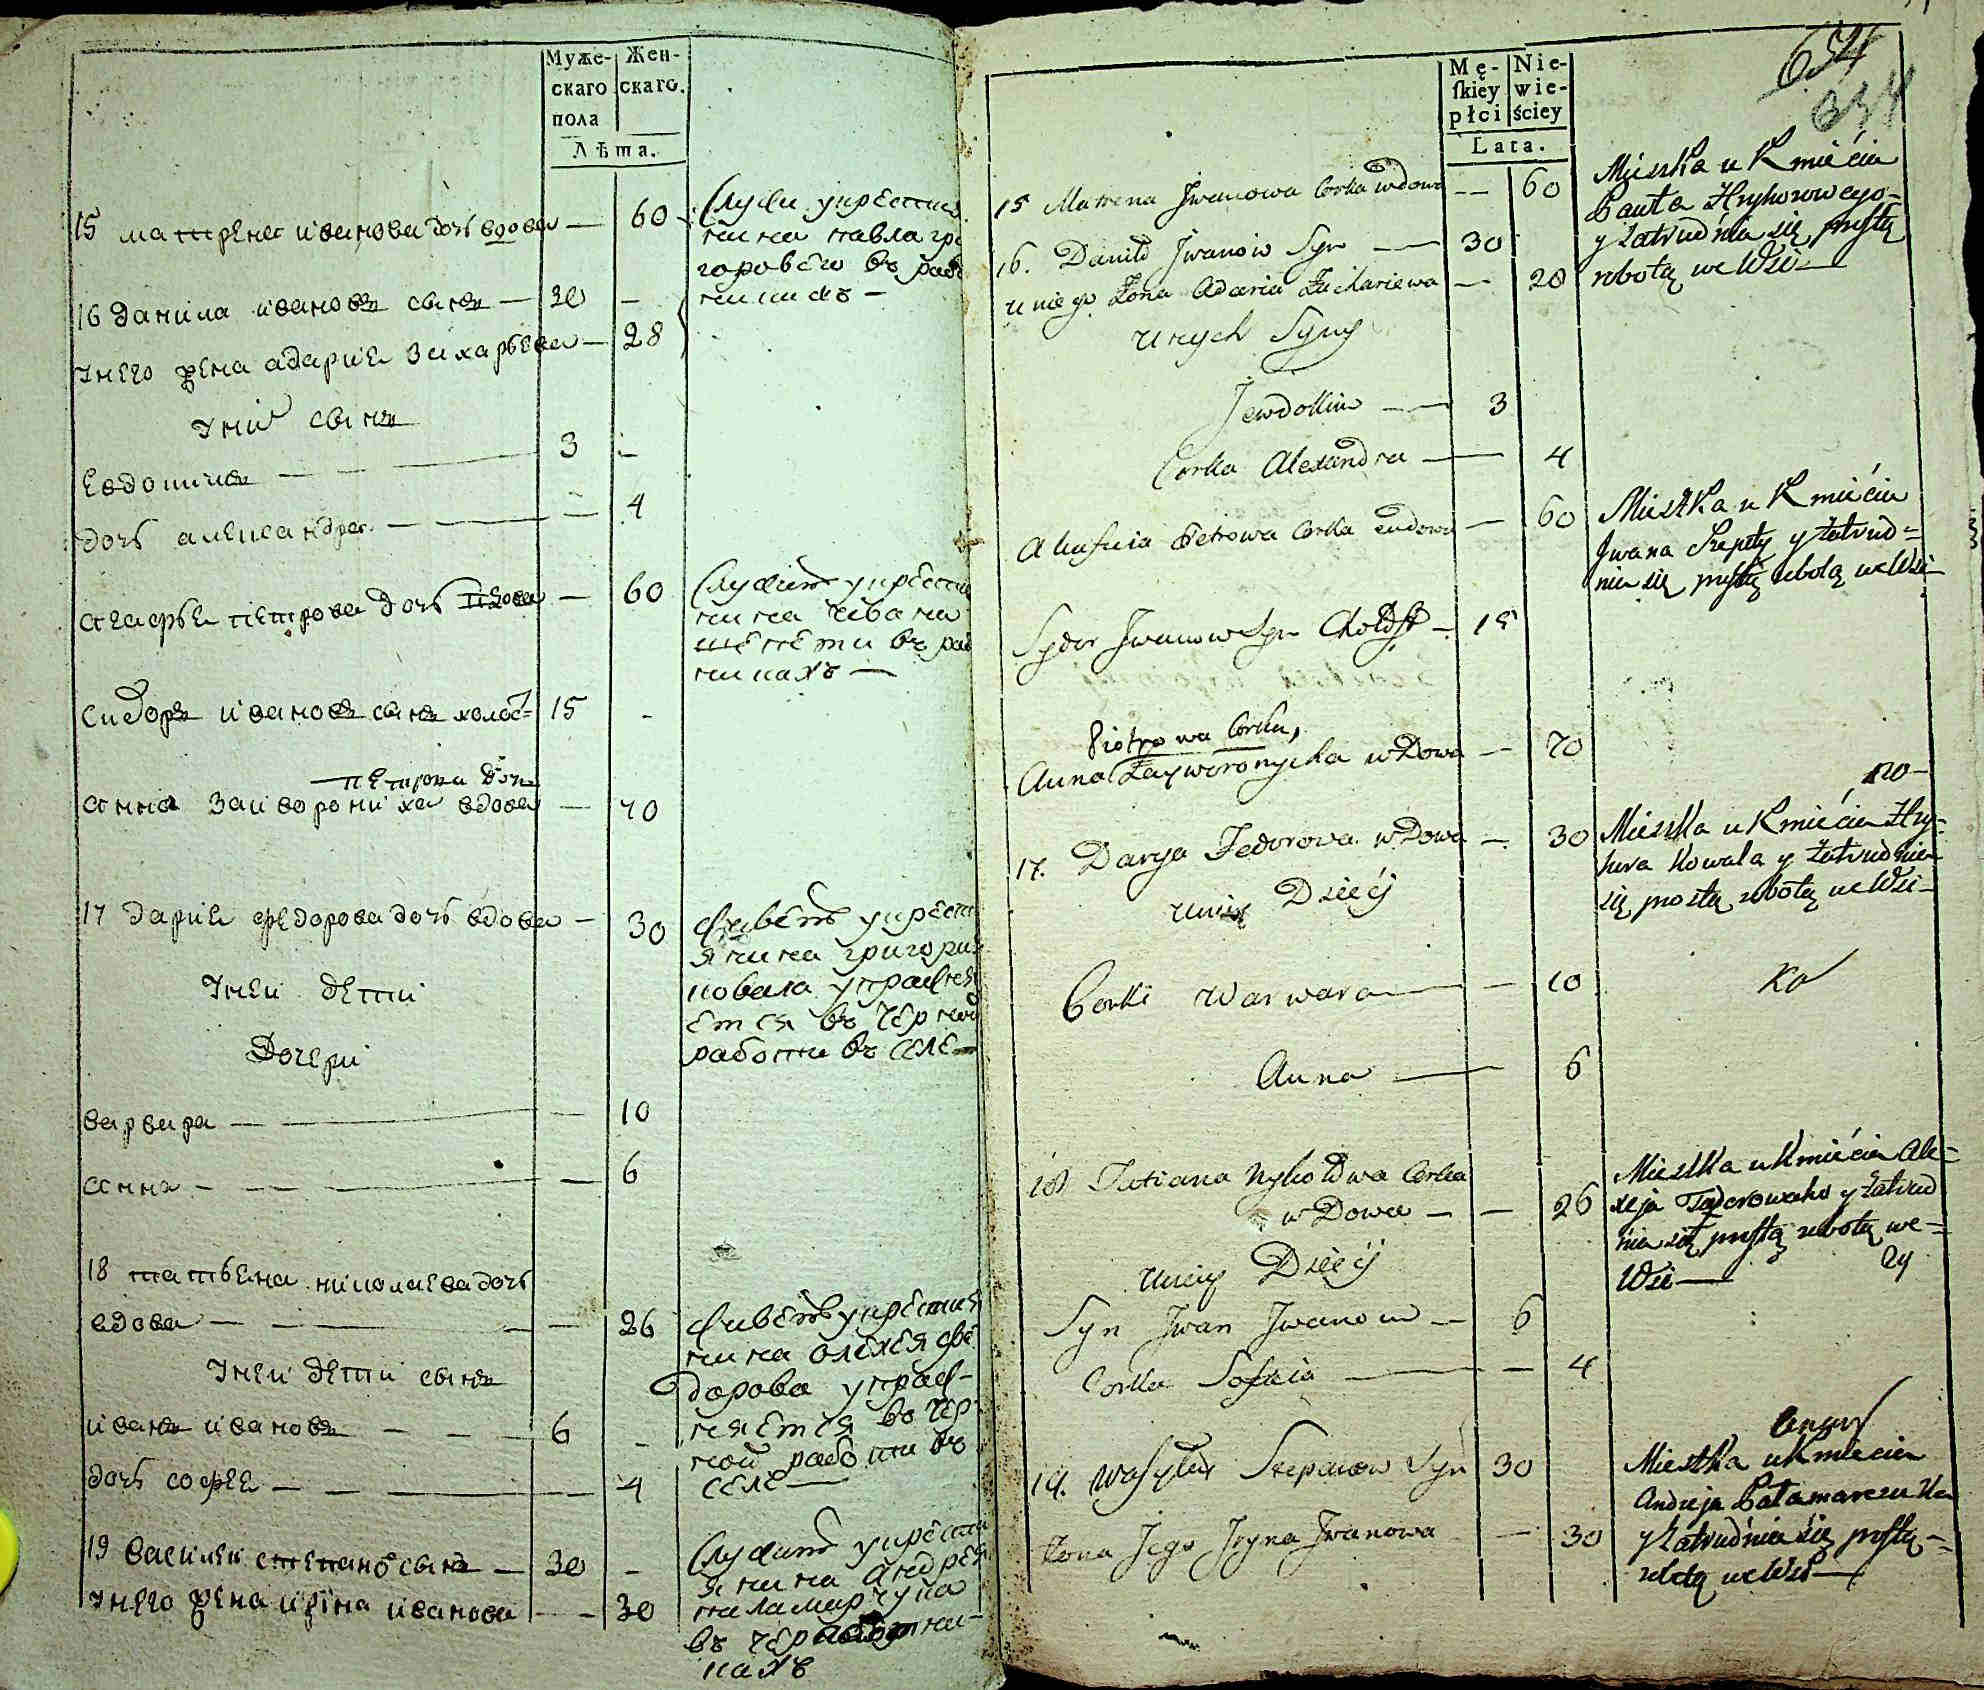 Муже-
скаго
пола
Жен-
скаго.
Лѣта.
15 матрена иванова дочь вдова — 60
Служи укрестия
нина павла гри
горовего въ работ
никахъ —
16 данила ивановъ сынъ — 30 -
Унего жена адария захарьева — 28
Уних сынъ
Евдокимъ — 3 -
дочь александра — 4
агафья петрова дочь вдова — 60
Служитъ укрестия
нина ивана
шепети въ раб
никахъ —
сидоръ ивановъ сынъ холос= 15 -
петрова дочь
анна заиворониха вдова — 70
17 дария федорова дочь вдова — 30
живетъ укрест
янина григория
ковала упражня
ется въ черной
работи въ селе —
Унеи дети
Дочери
варвара — 10
анна — 6
18 татьена николаева дочь
вдова — 26
живетъ укрестия
нина олексея фе
дорова упраж-
няется въ чер-
ной работи въ
селе —
Унеи дети сынъ
иванъ ивановъ — 6 -
дочь софея — 4
19 василеи степановъ сынъ — 30 -
Унего жена ирина иванова — 30
Служитъ укрести
янина андрея
паламарчука
въ чер работни-
кахъ
Mę-
ſkiey
płci
Nie-
wie-
ściey
Lata.
654
334
15 Matrena Jwanowa Corka wdowa — 60
Mieszka u Kmiécia
Pauła Hryhorowego-
y Zatrudńia się prostą
robotą we Wsi —
16. Daniło Jwanow Syn — 30
u niego Zona Adaria Zachariewa — 28
u nych Syny
Jewdokim — 3
Corka Alexandra — 4
Ahafia Petrowa Corka wdowa — 60
Mieszka u Kmiécia
Jwana Szepety y Zatrud=
nia się prostą robotą we Wsi
Sydor Jwanow Syn Chołost — 15
Piotrowa Corka,
Anna Zayworonycha wdowa — 70
17. Darya Fedorowa wdowa — 30
ho-
Mieszka u Kmiécia Hry=
hora Kowala y Zatrudnia
się prostą robotą we Wsi —
u niey Dzieći
Corki Warwara — 10
Ko
Anna — 6
18 Tatiana Nykołowa Corka
wdowa — 26
Mieszka u Kmiécia Ale=
xeja Fedorowaho y Zatrud
nia się prostą robotą we=
Wsi —
u niey Dzieći
Syn Jwan Jwanow — 6
Corka Sofia — 4
19. Wasyley Stepanow Syn 30
Mieszka u Kmiecia
Andreja Pałamarczuka
y Zatrudńia się prostą=
robotą we Wsi —
Zona Jego Jryna Jwanowa — 30